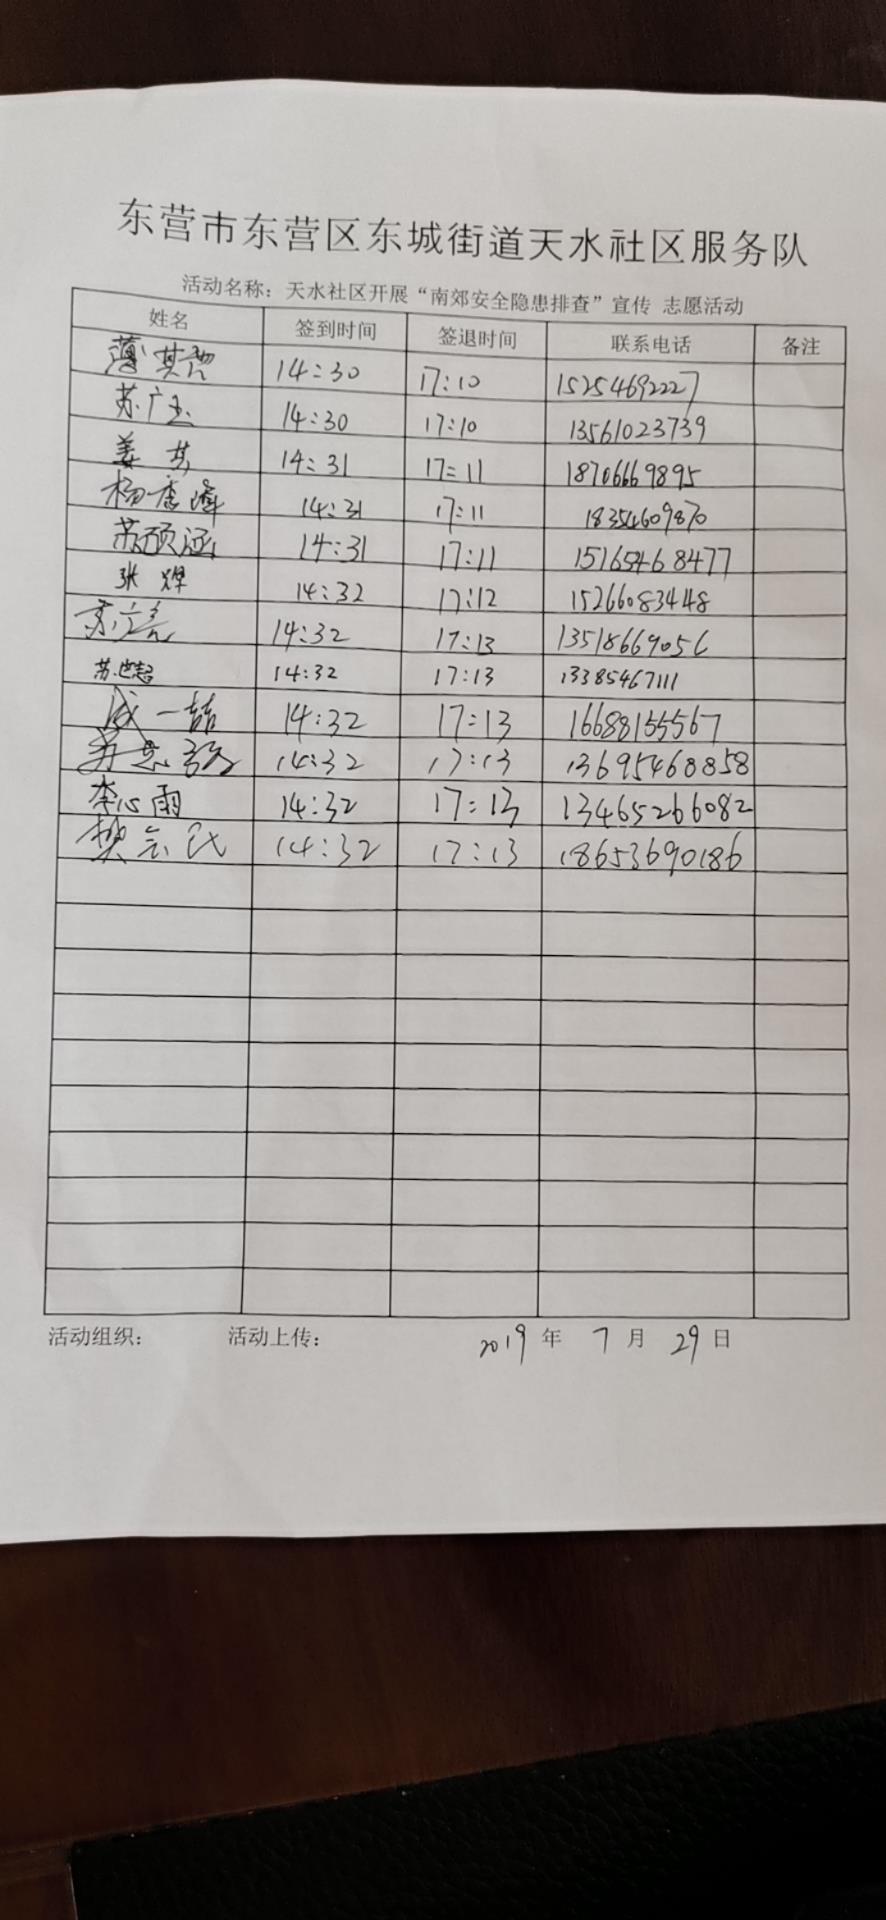 东营市东营区东城街道天水社区服务队
活动名称：天水社区开展“南郊安全隐患排查”宣传 志愿活动
姓名 签到时间 签退时间 联系电话 备注
薄其贵 14:30 17:10 15254692227
苏广玉 14:30 17:10 13561023739
姜其 14:31 17:11 18706669895
杨李峰 14:31 17:11 18354609870
苏硕涵 14:31 17:11 15165468477
张烨 14:32 17:12 15266083448
苏立亮 14:32 17:13 13518669056
苏世超 14:32 17:13 13385467111
成一喆 14:32 17:13 16688155567
14:32 17:13 13695468858
李心雨 14:32 17:13 13465266082
樊会民 14:32 17:13 18653690186
活动组织： 活动上传： 2019 年 7 月 29 日